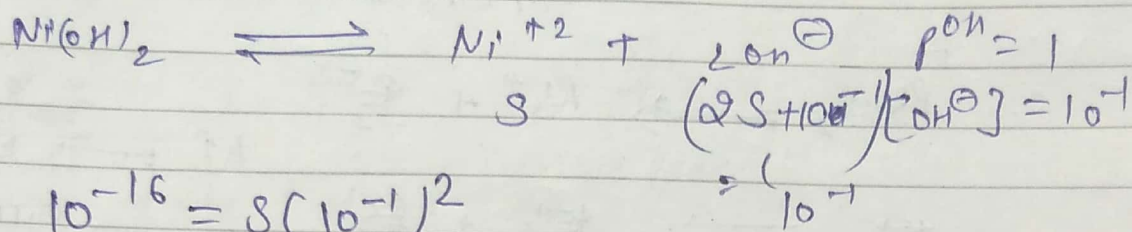 Ni(OH)₂ ⇌ Ni⁺² + 2OH⊖ pOH = 1
S (2S+10⁻¹) [OH⊖] = 10⁻¹
≈ 10⁻¹
10⁻¹⁶ = S(10⁻¹)²